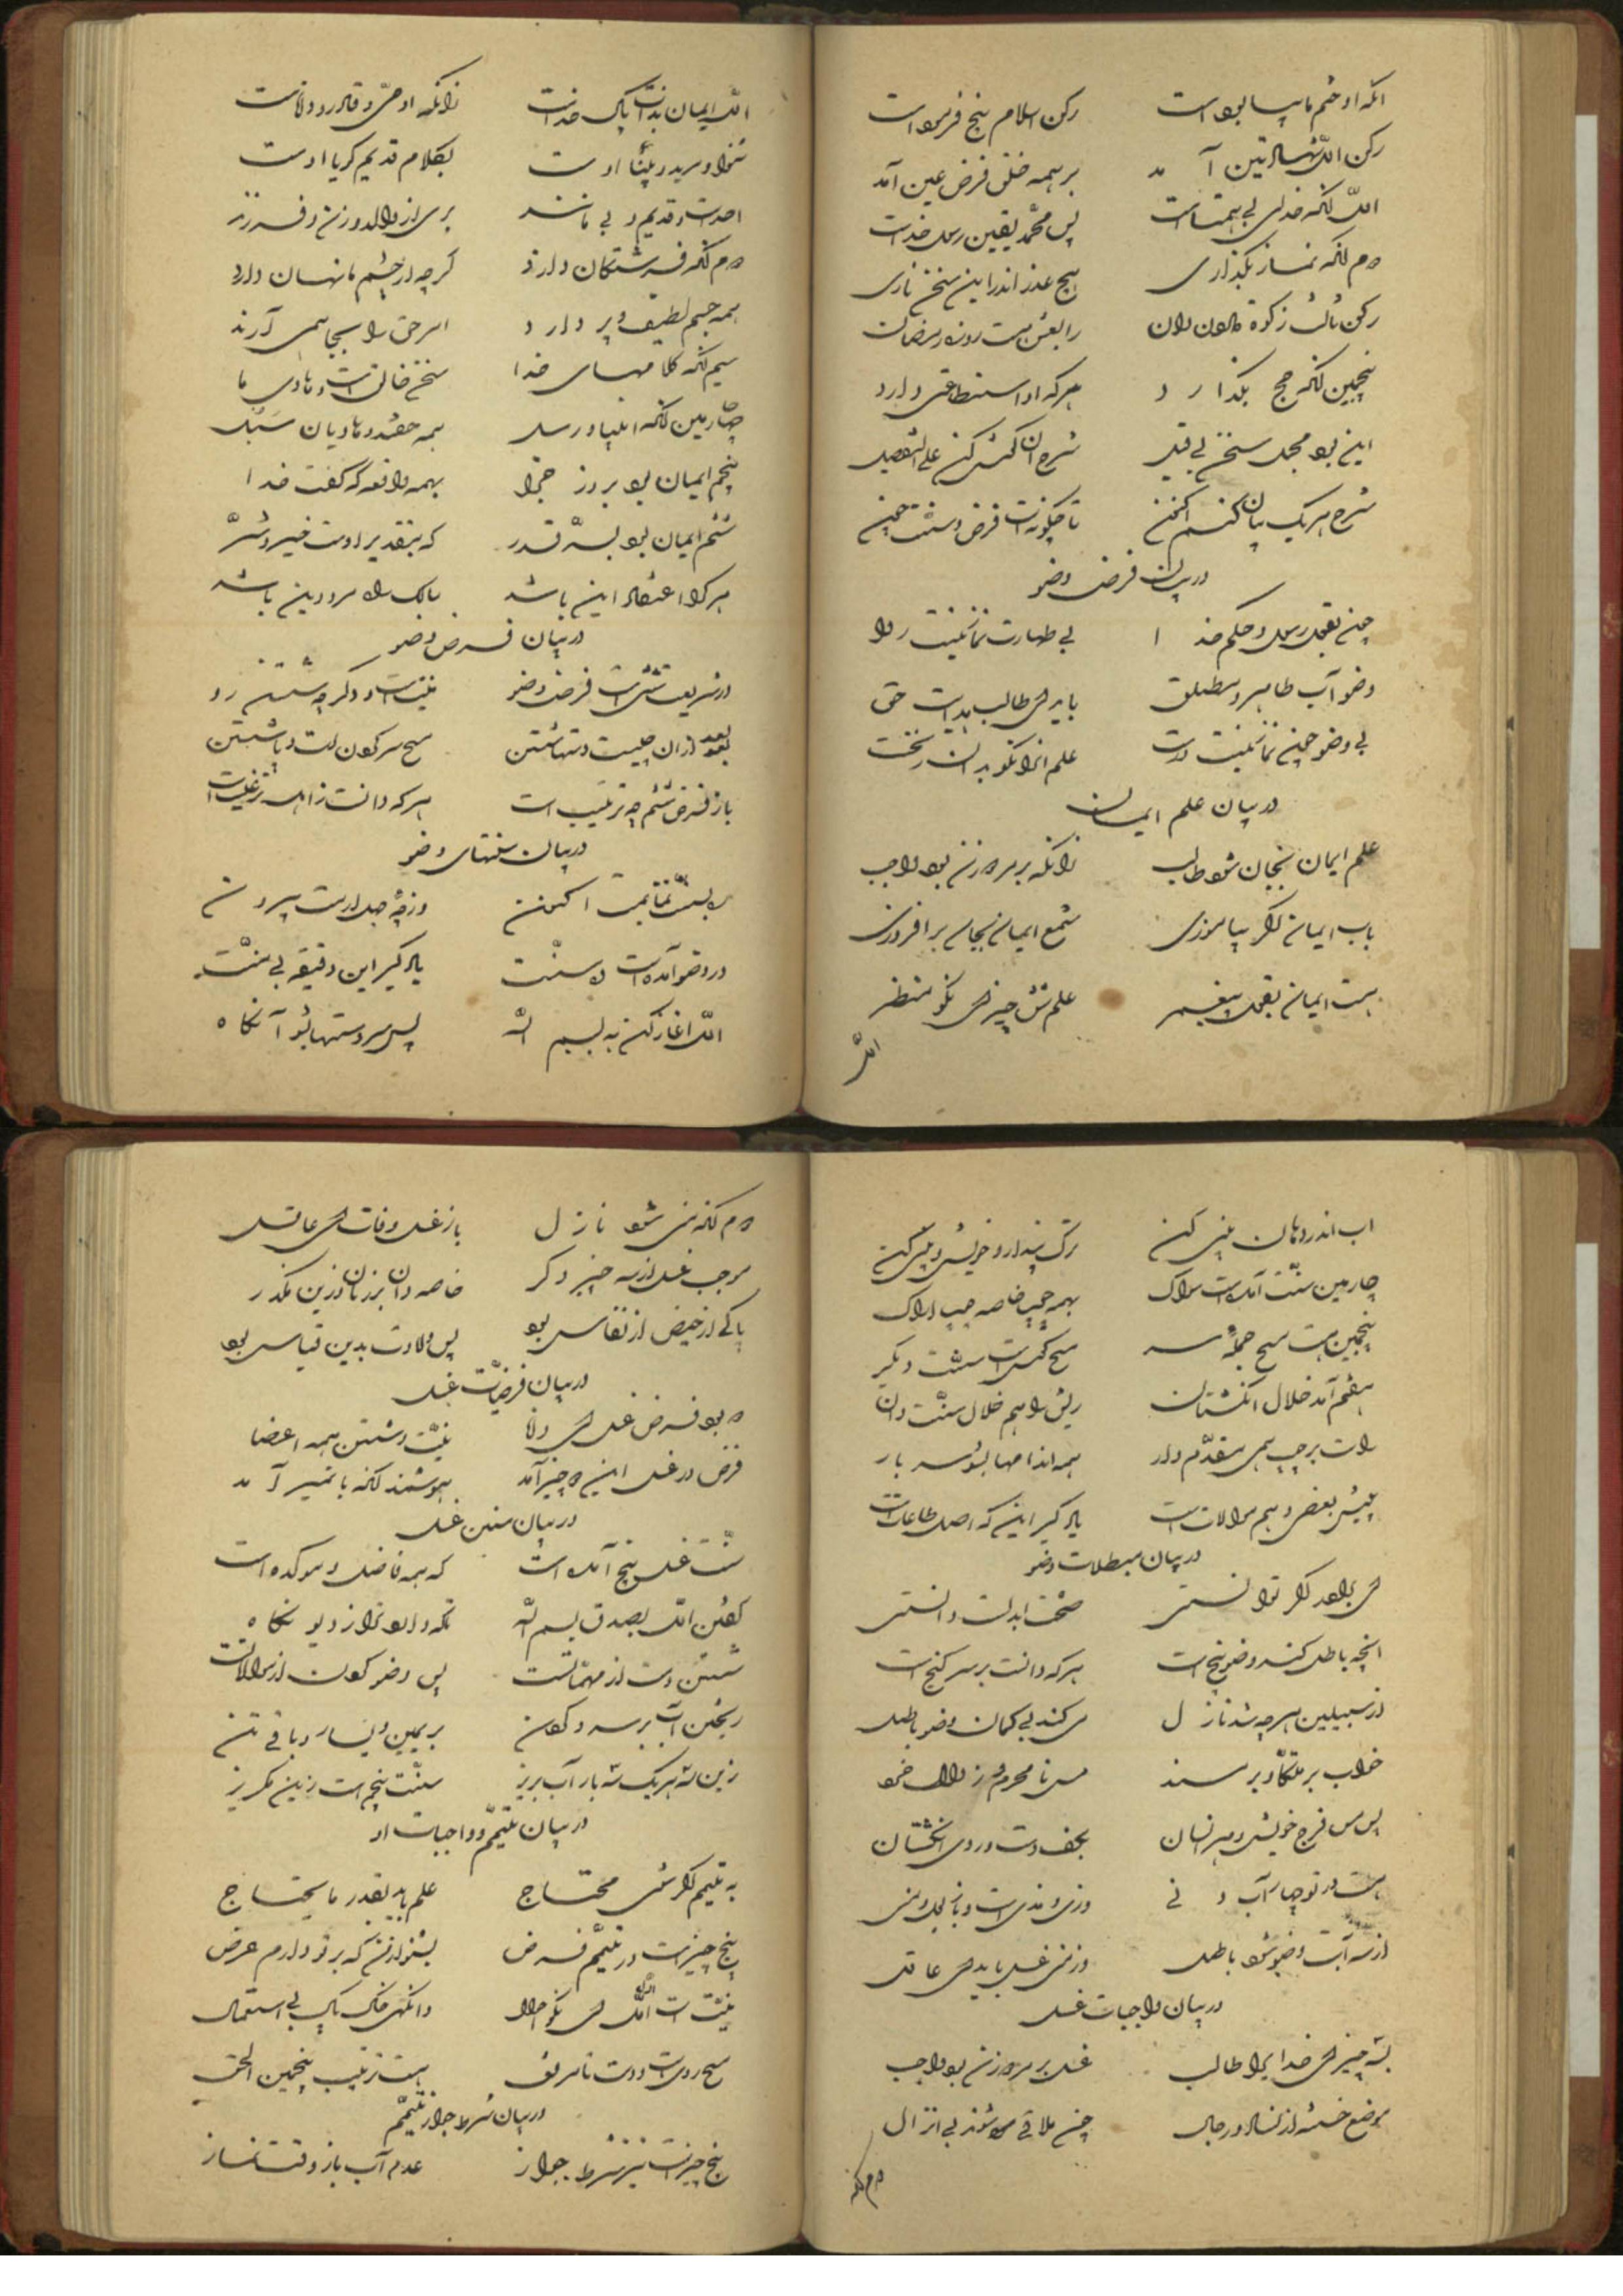 آنکه او ختم انبیا بوده است رکن اسلام پنج فرموده است
رکن اول شهادتین آمد بر همه خلق فرض عین آمد
اول آنکه خدای بی همتاست پس محمد یقین رسول خداست
دوم آنکه نماز بگذاری هیچ عذر اندر این سخن ناری
رکن ثالث زکوة مال دان رابعش هست روزه رمضان
پنجمین آنکه حج بگذارد هر که او استطاعتی دارد
این بود مجمل سخن بی قیل شرح آن گوش کن علی التفصیل
شرح هر یک بیان کنم اکنون تا چگونه است فرض و سنت چون
در بیان فرض وضو
چون بقول رسول و حکم خدا بی طهارت نماز نیست روا
وضو آب طاهر و مطلق باید ای طالب هدایت حق
بی وضو چون نماز نیست درست علم آنرا نکو بدان ز نخست
در بیان علم ایمان
علم ایمان بجان شو طالب زانکه بر مرد و زن بود واجب
باب ایمان اگر بیاموزی شمع ایمان بجان برافروزی
هست ایمان بقول پیغمبر علم شش چیز ای نکو منظر
اول
اول ایمان بذات پاک خداست زانکه او حی و قادر و داناست
شنوا و مرید و بینا اوست بکلام قدیم گویا اوست
احد است و قدیم و بی مانند بری از والد و زن و فرزند
دوم آنکه فرشتگان دارد گرچه از چشم ما نهان دارد
همه جسم لطیف و پر دارد امر حق را بجا همی آرند
سیم آنکه کلامهای خدا سخن خالق است و هادی ما
چارمین آنکه انبیا و رسل همه حقند و هادیان سبل
پنجم ایمان بود بروز جزا بهمه واقعه که گفت خدا
ششم ایمان بود بسر قدر که بتقدیر اوست خیر و شر
هر کرا اعتقاد این باشد سالک راه مرد دین باشد
در بیان فرض وضو
در شریعت شش است فرض وضو نیت است و دگر چه شستن رو
بعد از آن چیست دستها شستن مسح سر کردن است و پا شستن
باز فرض ششم چه ترتیب است هر که دانست ز اهل ترغیب است
در بیان سنتهای وضو
در وضو آمده است ده سنت یاد گیر این دقیقه بی منت
اول آغاز کن به بسم الله پس سر دستها بشو آنگاه
آب اندر دهان و بینی کن ترک پندار و خویش بینی کن
چارمین سنت آمده است سواک بهمه چوب خاصه چوب اراک
پنجمین هست مسح جمله سر مسح گوش است سنت دیگر
هفتم آمد خلال انگشتان ریش را هم خلال سنت دان
راست بر چپ همی مقدم دار همه اندامها بشو سه بار
پیش بعضی دهم موالات است یاد گیر این که اصل طاعات است
در بیان مبطلات وضو
ای برادر اگر توانستی صحت ابدلت دانستی
آنچه باطل کند وضو پنج است هر که دانست بر سر گنج است
از سبیلین هر چه شد نازل می کند بی گمان وضو باطل
پس مس فرج خویش و هر انسان بکف دست و روی انگشتان
هست در تو چهار آب دنی ودی و مذی است و باز بول و منی
از سه آبت وضو شود باطل وز منی غسل باید ای عاقل
در بیان واجبات غسل
بسه چیز ای خدای را طالب غسل بر مرد و زن بود واجب
موضع ختنه از نسا و رجال چون ملاقی شوند بی انزال
دوم آنکه
دوم آنکه منی شود نازل باز غسل وفات ای عاقل
موجب غسل از سه چیز دگر خاصه دان بر زنان وزین مگذر
پاکی از حیض از نفاس بود پس ولادت بدین قیاس بود
در بیان فرضیات غسل
دو بود فرض غسل ای دانا نیت و شستن همه اعضا
فرض در غسل این دو چیز آمد هوشمند آنکه با تمیز آمد
در بیان سنن غسل
سنت غسل پنج آمده است که همه فاضل و موکده است
گفتن اول بصدق بسم الله تکه دارد ترا ز دیو نگاه
شستن دست از مهمات است پس وضو کردن از موالات است
ریختن آب بر سر و گردن بر یمین و یسار و باقی تن
زین سه هر یک سه بار آب بریز سنت پنجم است زین مگریز
در بیان تیمم و واجبات او
به تیمم اگر شوی محتاج علم باید بقدر ما یحتاج
پنج چیز است در تیمم فرض بشنو از من که بر تو دارم عرض
نیت است اول ای نکو احوال وانگهی خاک پاک بی استعمال
مسح روی است و دست تا مرفق هست ترتیب پنجمین الحق
در بیان شرط جواز تیمم
پنج چیز است نیز شرط جواز عدم آب باز وقت نماز